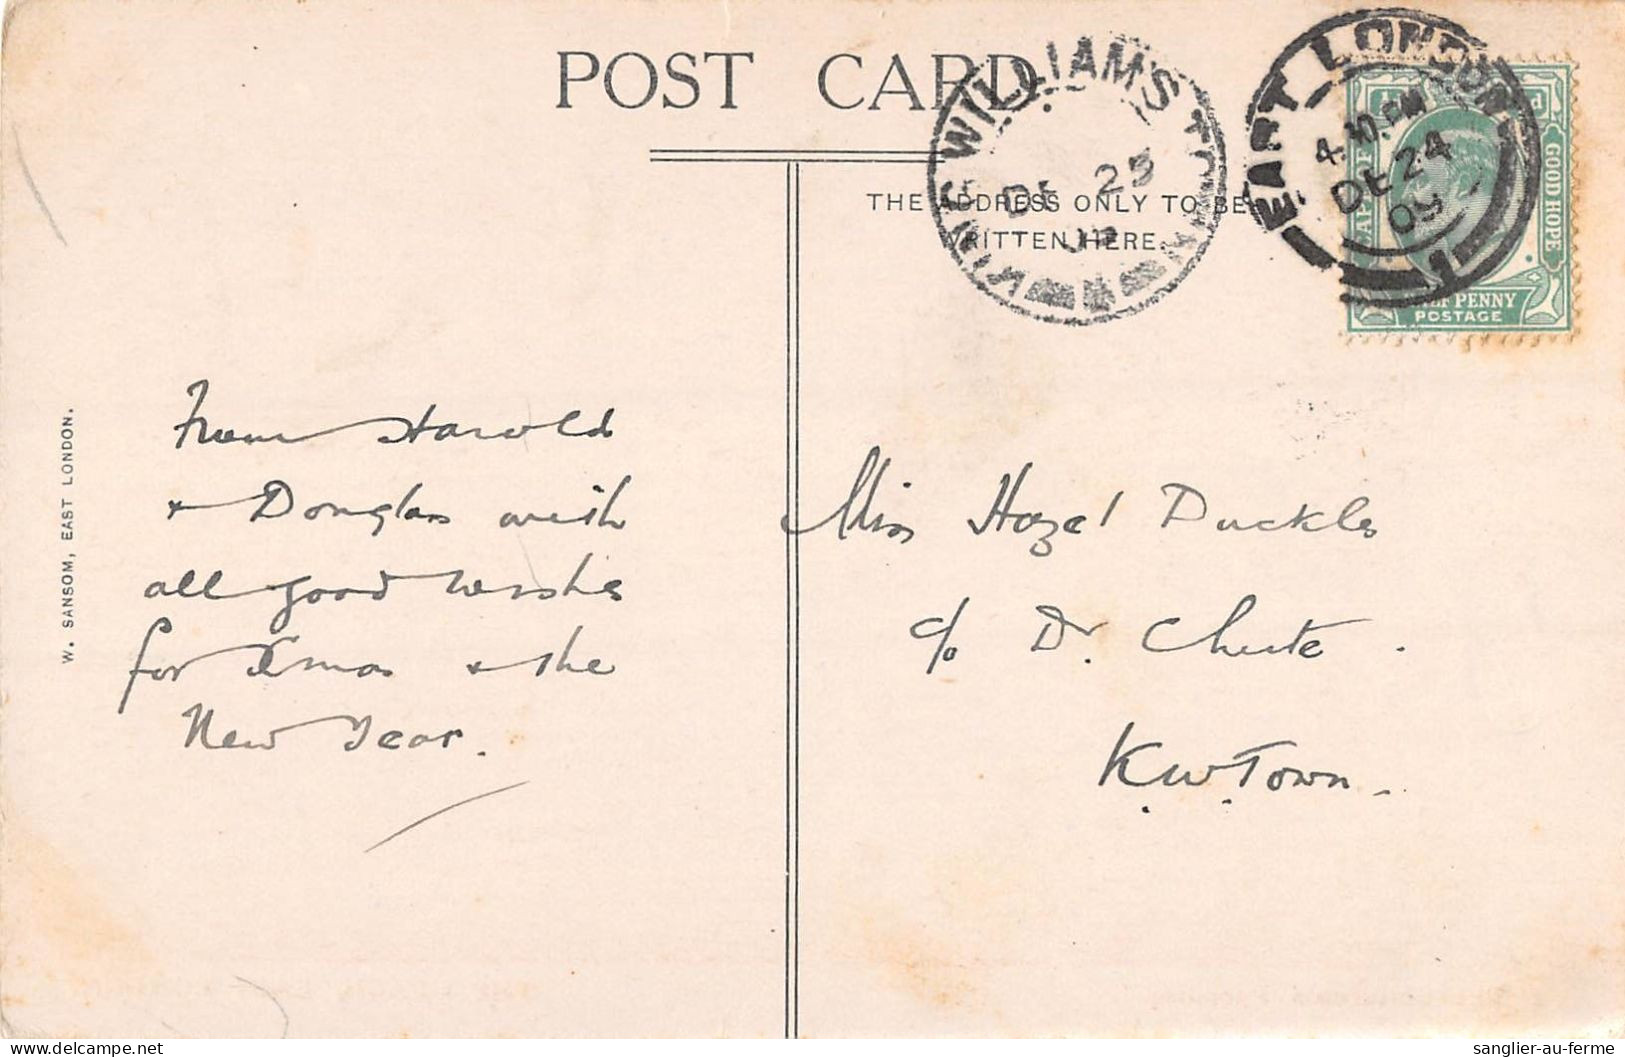 POST CARD
THE ADDRESS ONLY TO BE
WRITTEN HERE.
KING WILLIAM'S TOWN
DE 25
09
EAST LONDON
4.10 PM
DE 24
09
1
CAPE OF GOOD HOPE
HALF PENNY
POSTAGE
W. SANSOM, EAST LONDON.
From Harold
& Douglas with
all good wishes
for Xmas & the
New Year.
Miss Hazel Duckles
c/o Dr. Chute.
K.W.Town.
sanglier-au-ferme